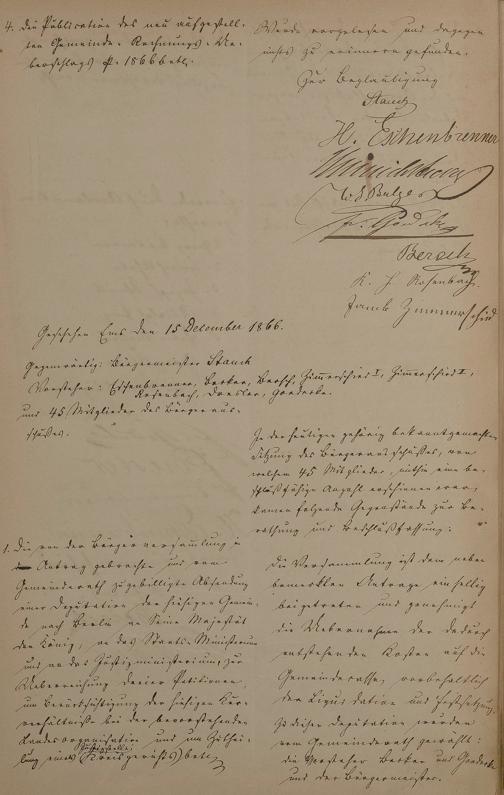 4. die Publication des neu aufgestell-
ten Gemeinde-Rechnungs-Ue-
berschlags p. 1866 betr.
Wurde vorgelesen und dagegen
nichts zu erinnern gefunden.
Zur Beglaubigung
Stauch
H. Eschenbrenner
W. L. Balzer
Fr. Goedecke
Bersch
K. H. Rosenbach
Jacob Zimmerschied
Geschehen Ems den 15 December 1866.
Gegenwärtig: Bürgermeister Stauch
Vorsteher: Eschenbrenner, Becker, Bersch, Zimmerschied I, Zimmerschied II,
Rosenbach, Goedecke.
und 45 Mitglieder des Bürgeraus-
schußes.
In der heutigen gehörig bekanntgemachten
Sitzung des Bürgerausschußes, von
welchem 45 Mitglieder, mithin eine be-
schlußfähige Anzahl erschienen war,
kamen folgende Gegenstände zur Be-
rathung und Beschlußfassung:
1. Die von der Bürgerversammlung in
Antrag gebrachte und vom
Gemeinderath zugebilligte Absendung
einer Deputation der hiesigen Gemein-
de nach Berlin an Seine Majestät
den König, an das Staats-Ministerium
und an das Justizministerium, zur
Ueberreichung dreier Petitionen,
um Berücksichtigung der hiesigen
verhältniße bei der bevorstehenden
Landesorganisation und um Zuthei-
lung eines Kreisgerichts betr.
Die Versammlung ist dem neben
bemerkten Antrage einhellig
beigetreten und genehmigt
die Uebernahme der dadurch
entstehenden Kosten auf die
Gemeindekasse, vorbehaltlich
der Liquidation und Festsetzung.
Zu dieser Deputation wurden
vom Gemeinderath gewählt:
die Vorsteher Becker und Goedecke
und der Bürgermeister.